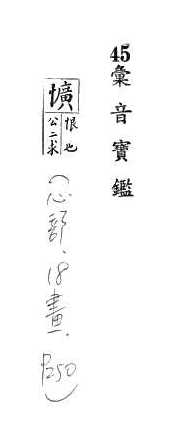 45彙音寶鑑
壙
恨也
公二求
(心部,18畫,P250)